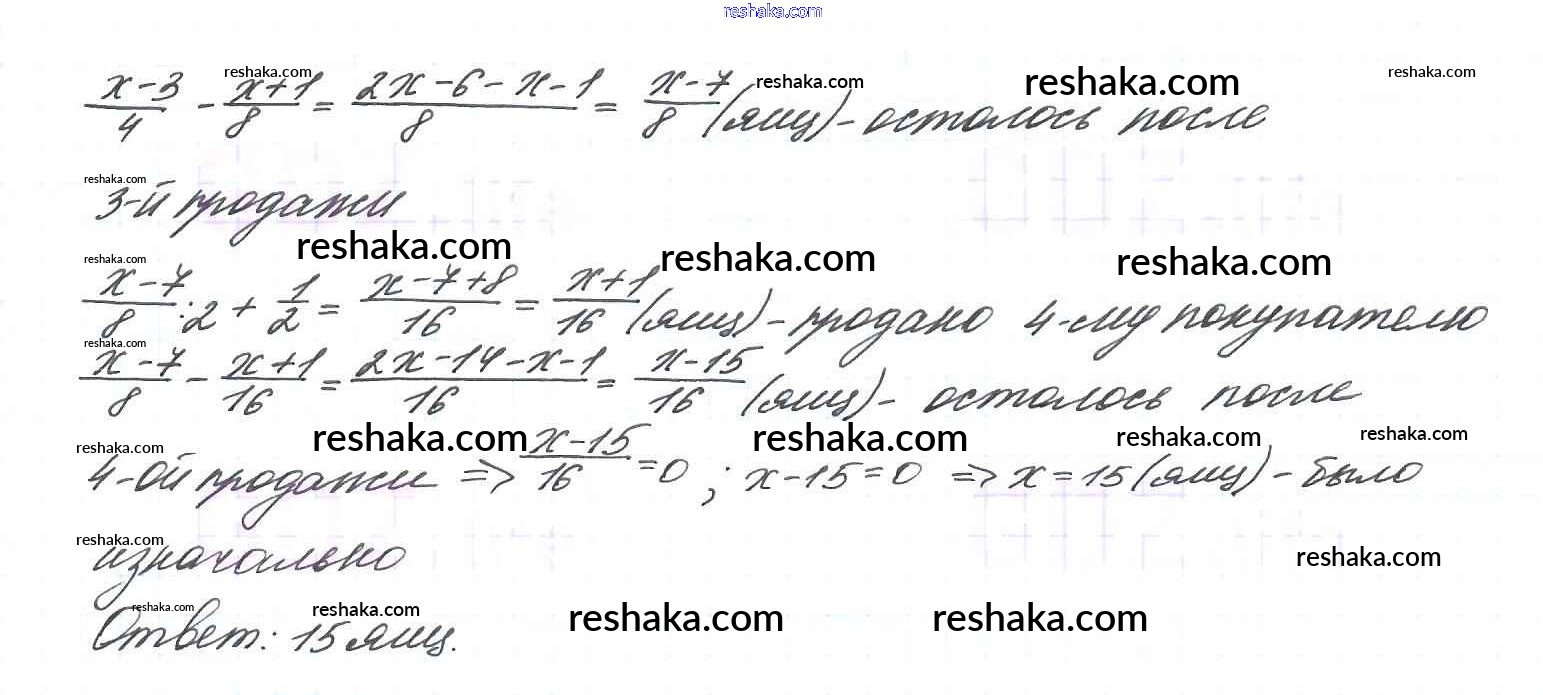 reshaka.com
(x-3)/4 - (x+1)/8 = (2x-6-x-1)/8 = (x-7)/8 (ящ) - осталось после
reshaka.com reshaka.com reshaka.com reshaka.com
reshaka.com
3-й продажи
reshaka.com reshaka.com reshaka.com
reshaka.com
(x-7)/8 : 2 + 1/2 = (x-7+8)/16 = (x+1)/16 (ящ) - продано 4-му покупателю
reshaka.com
(x-7)/8 - (x+1)/16 = (2x-14-x-1)/16 = (x-15)/16 (ящ) - осталось после
reshaka.com reshaka.com reshaka.com reshaka.com reshaka.com
4-ой продажи => (x-15)/16 = 0 ; x-15=0 => x=15 (ящ) - было
reshaka.com reshaka.com
изначально
reshaka.com reshaka.com reshaka.com reshaka.com
Ответ: 15 ящ.